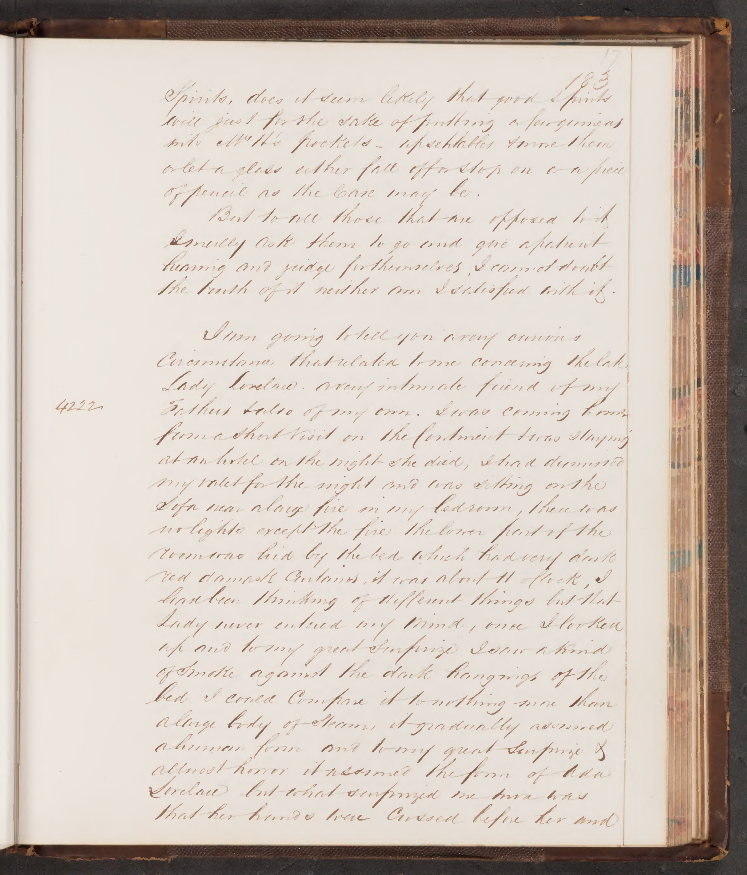 17
183
Spirits, does it seem likely that good Spirits
will just for the sake of putting a few guineas
into Mr H's pockets - upset tables & move them
or let a glass either fall off or stop on or a piece
of pencil as the Case may be.
But to all those that are opposed to it
I merely ask them to go and give a patient
hearing and judge for themselves, I cannot doubt
the truth of it neither am I satisfied with it.
I am going to tell you a very curious
Circumstance that related to me concerning the late
Lady Lovelace. a very intimate friend of my
4222
Fathers & also of my own. I was coming home
from a short Visit on the Continent & was staying
at an hotel on the night she died, I had dismissed
my valet for the night and was sitting on the
Sofa near a large fire in my bedroom, there was
no lights except the fire the lower part of the
room was hid by the bed which had very dark
red damask Curtains, it was about 11 oClock, I
had been thinking of different things but that
Lady never entered my mind, once I looked
up and to my great Surprize I saw a kind
of Smoke against the dark hangings of the
bed I could Compare it to nothing more than
a large body of Steam, it gradually assumed
a human form and to my great Surprize &
allmost horror it assumed the form of Ada
Lovelace but what surprized me more was
that her hands were Crossed before her and